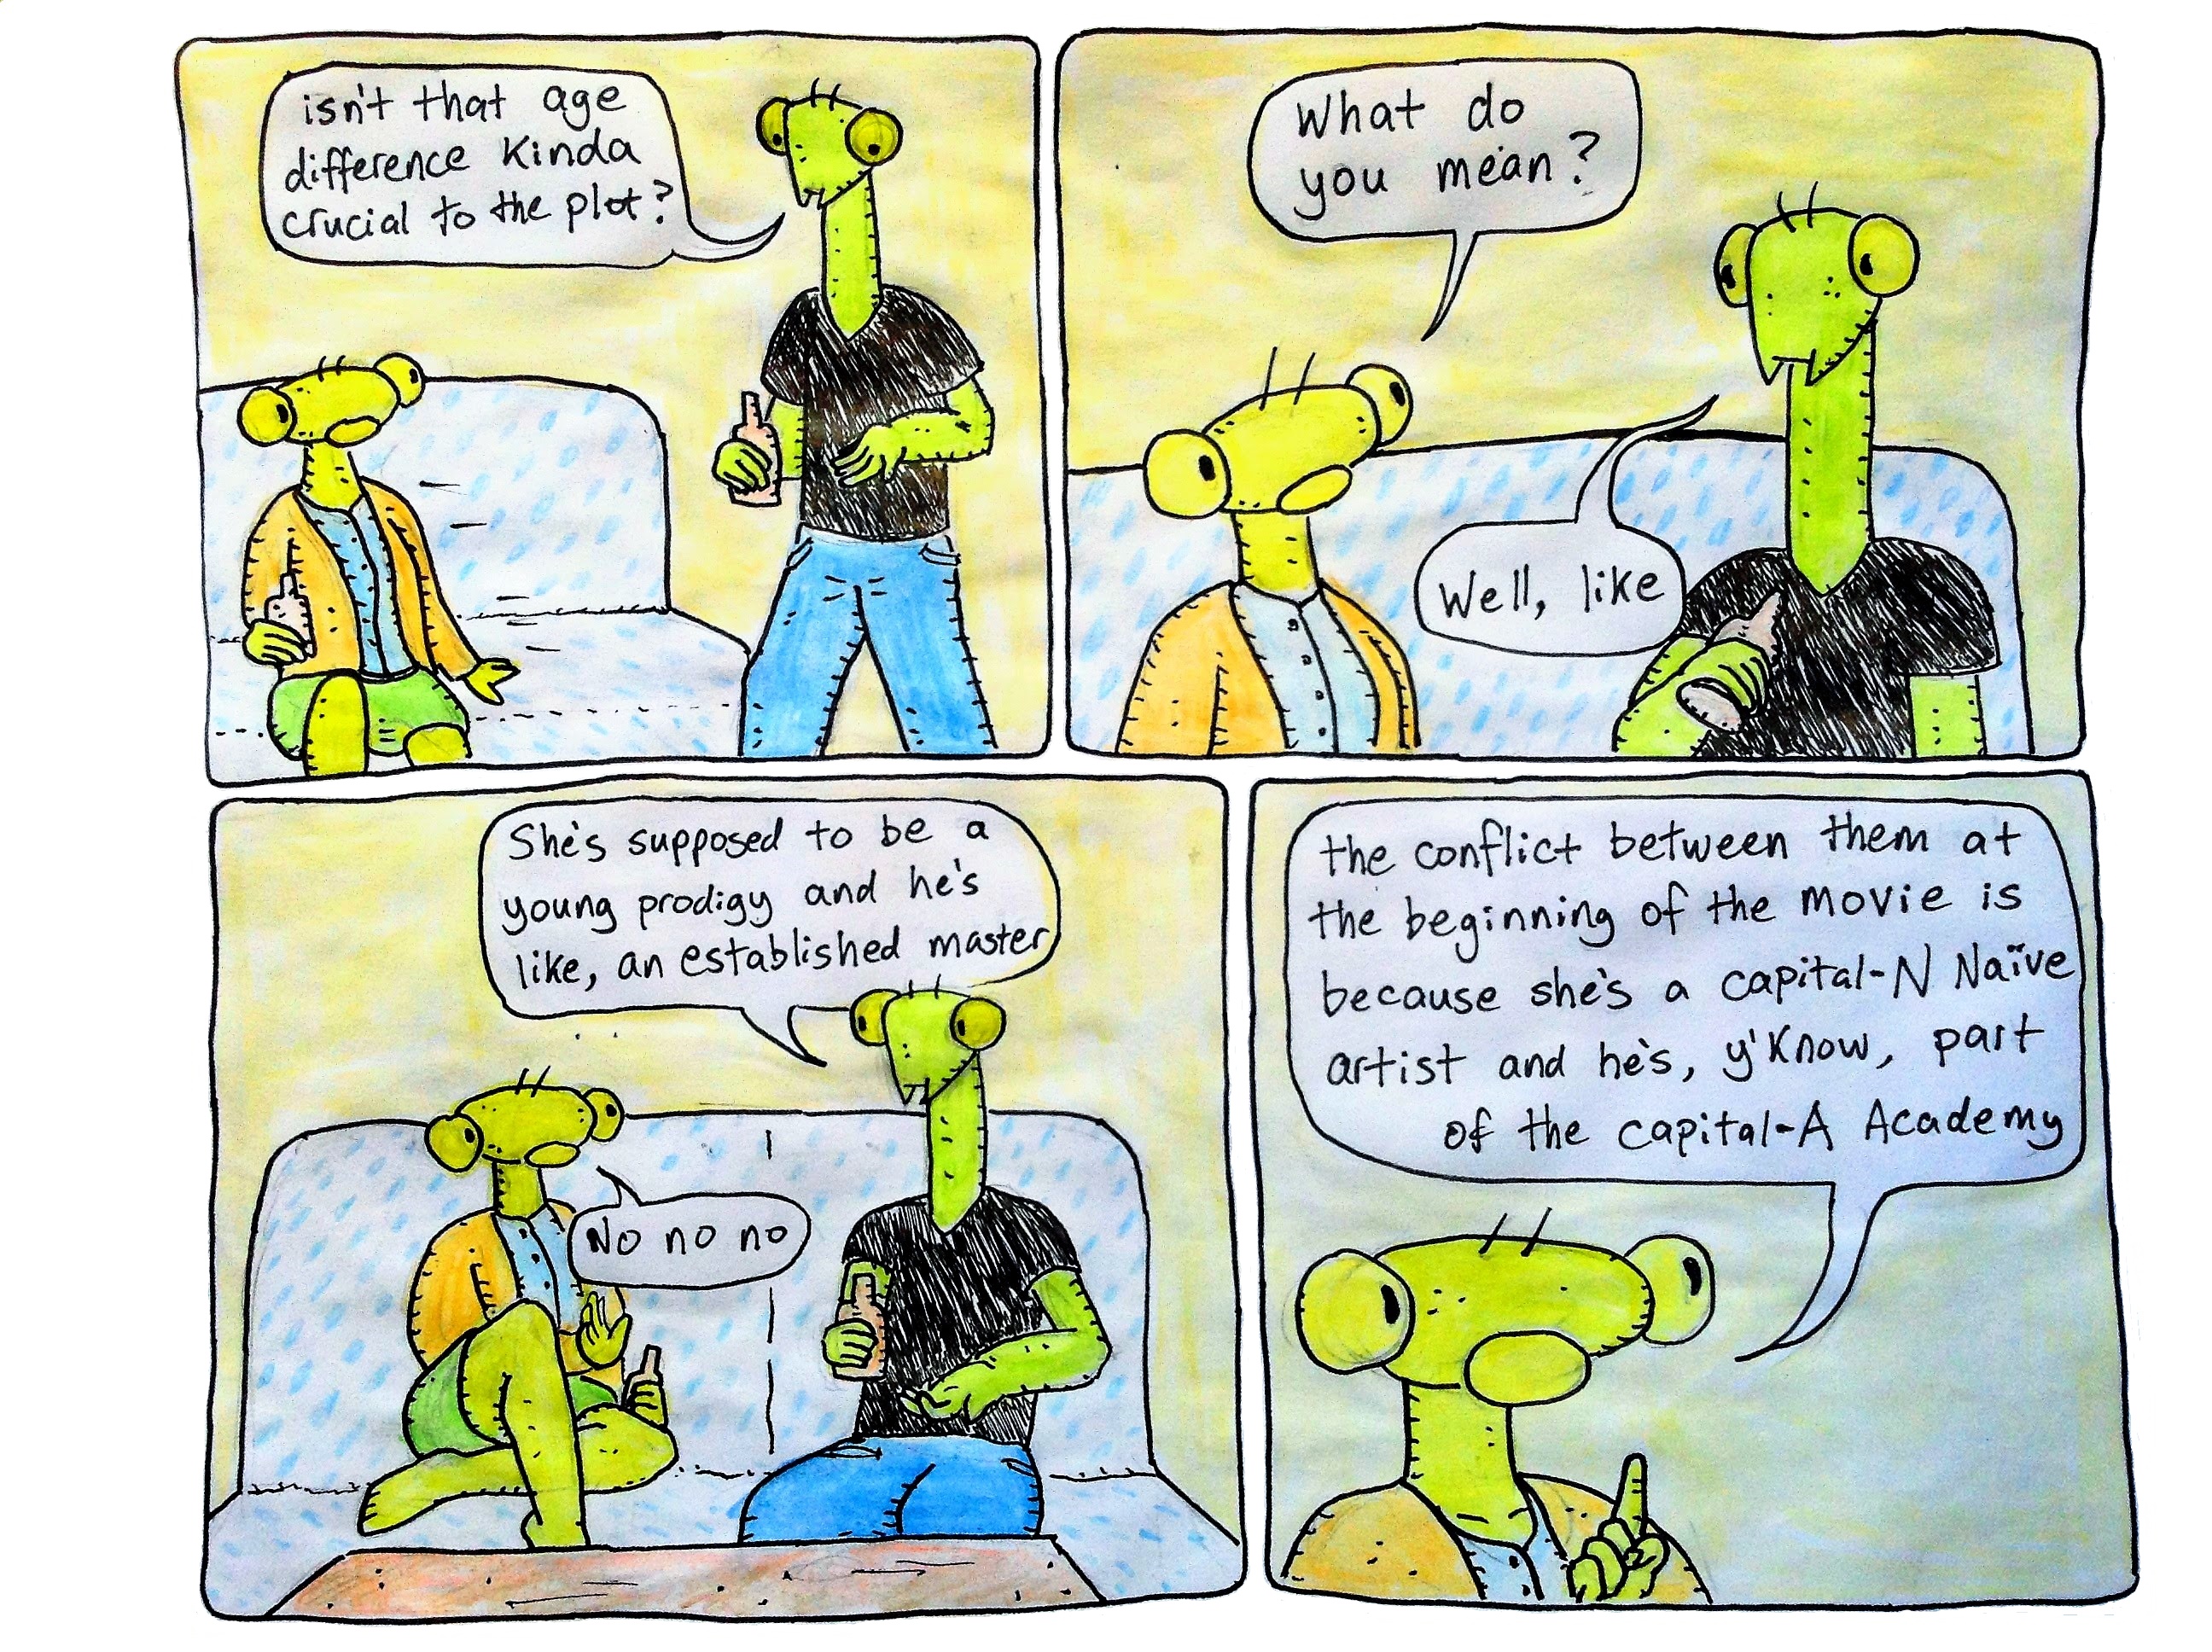 isn't that age
difference kinda
crucial to the plot?
What do
you mean?
Well, like
She's supposed to be a
young prodigy and he's
like, an established master
No no no
the conflict between them at
the beginning of the movie is
because she's a capital-N Naïve
artist and he's, y'know, part
of the capital-A Academy